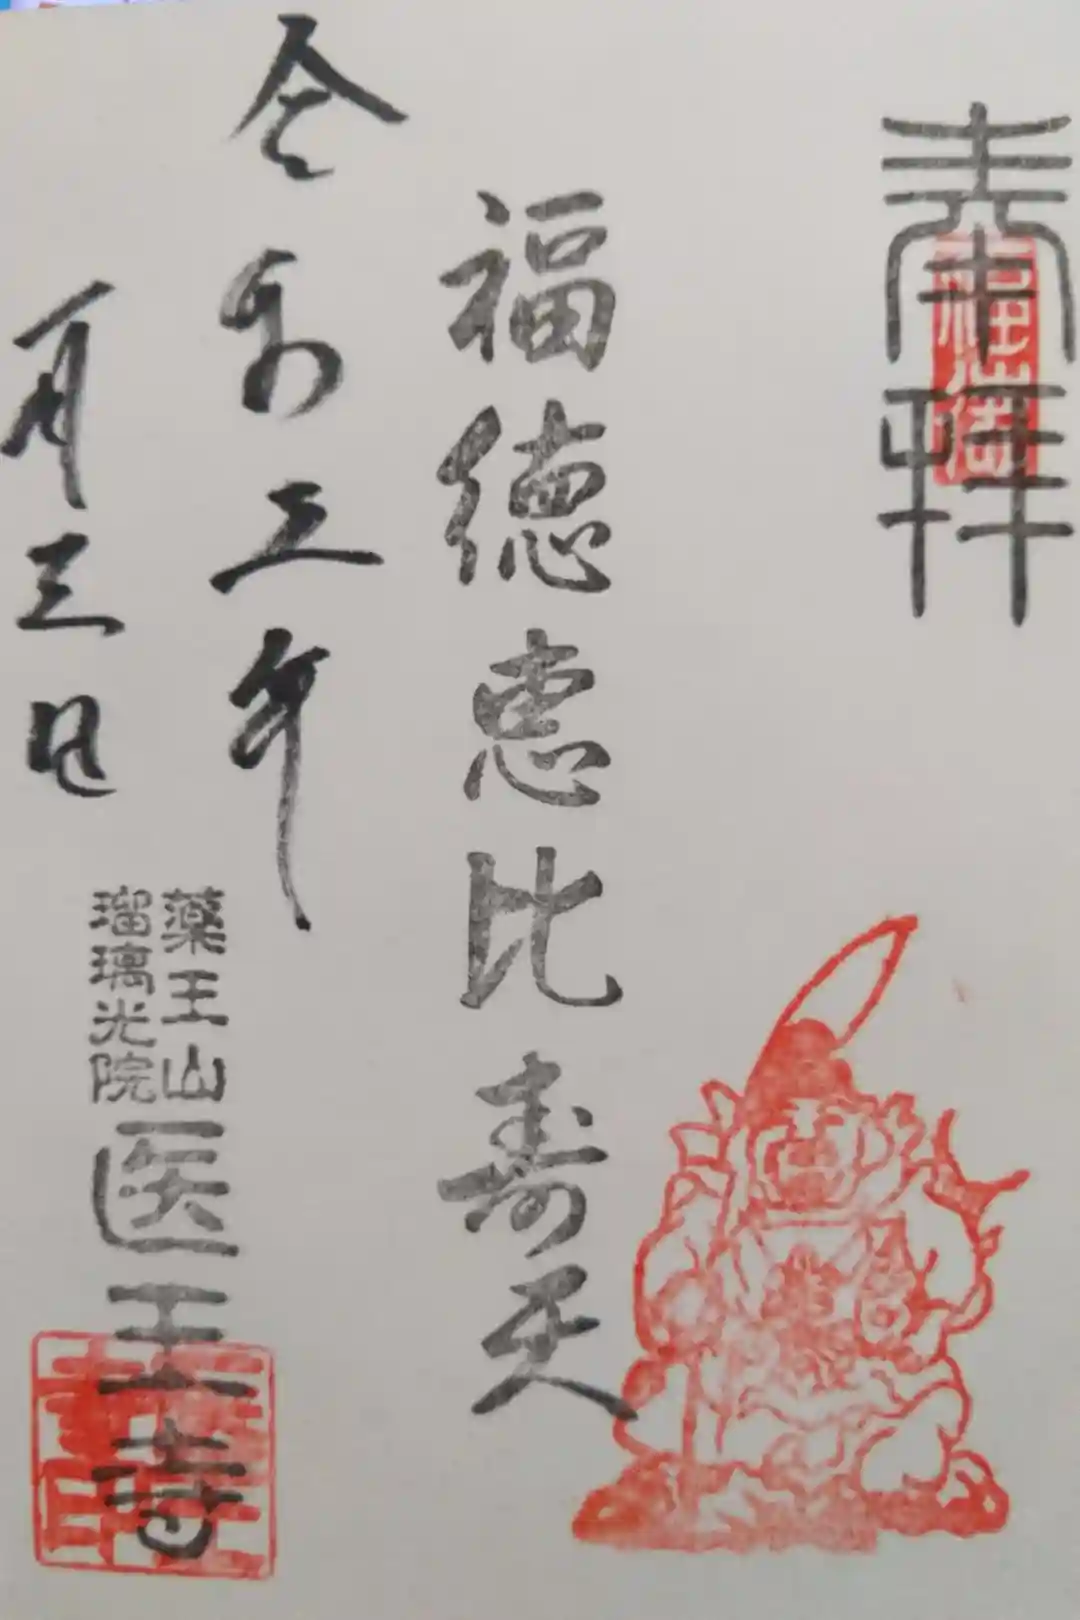 奉拝
福徳恵比寿天
令和三年
月三日
薬王山
瑠璃光院
医王寺